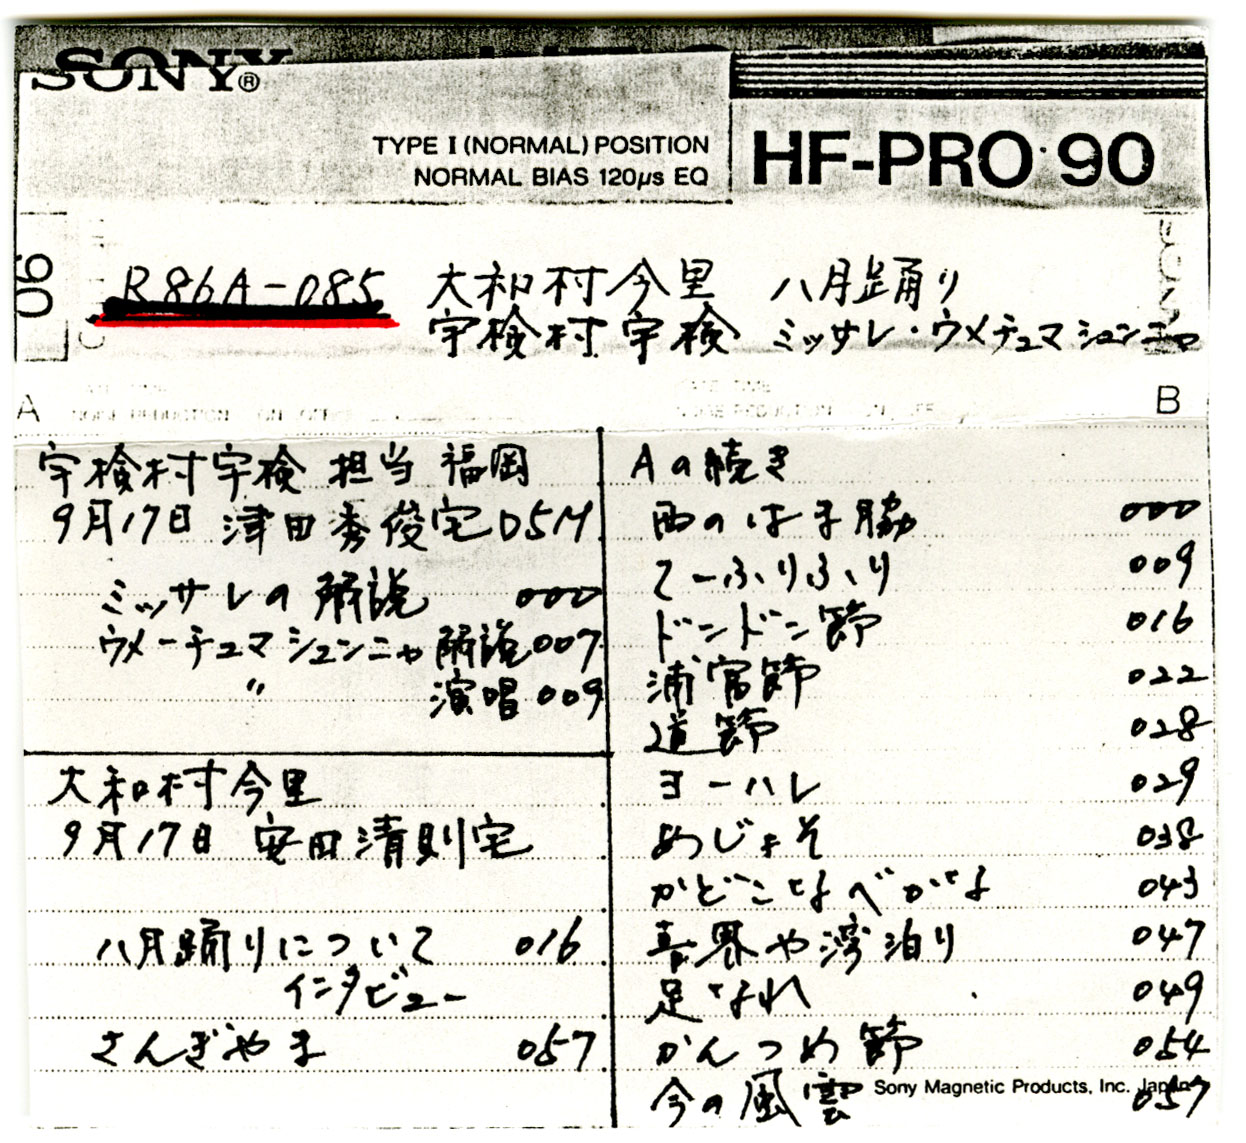 SONY
SONY®
TYPE I (NORMAL) POSITION
NORMAL BIAS 120μs EQ
HF-PRO 90
90
R86A-085 大和村今里 八月踊り
宇検村宇検 ミッサレ・ウメチュマシュンニャ
A
B
宇検村宇検 担当 福岡
9月17日 津田秀俊宅
ミッサレの解説 000
ウメーチュマシュンニャ解説007
〃 演唱009
大和村今里
9月17日 安田清則宅
八月踊りについて 016
インタビュー
さんぎやま 057
Aの続き
西のはま脇 000
てーふりふり 009
ドンドン節 016
浦富節 022
道節 028
ヨーハレ 029
めじょそ 038
かどこなべかな 043
喜界や湾泊り 047
足なれ 049
かんつめ節 054
今の風雲 057
Sony Magnetic Products, Inc. Japan